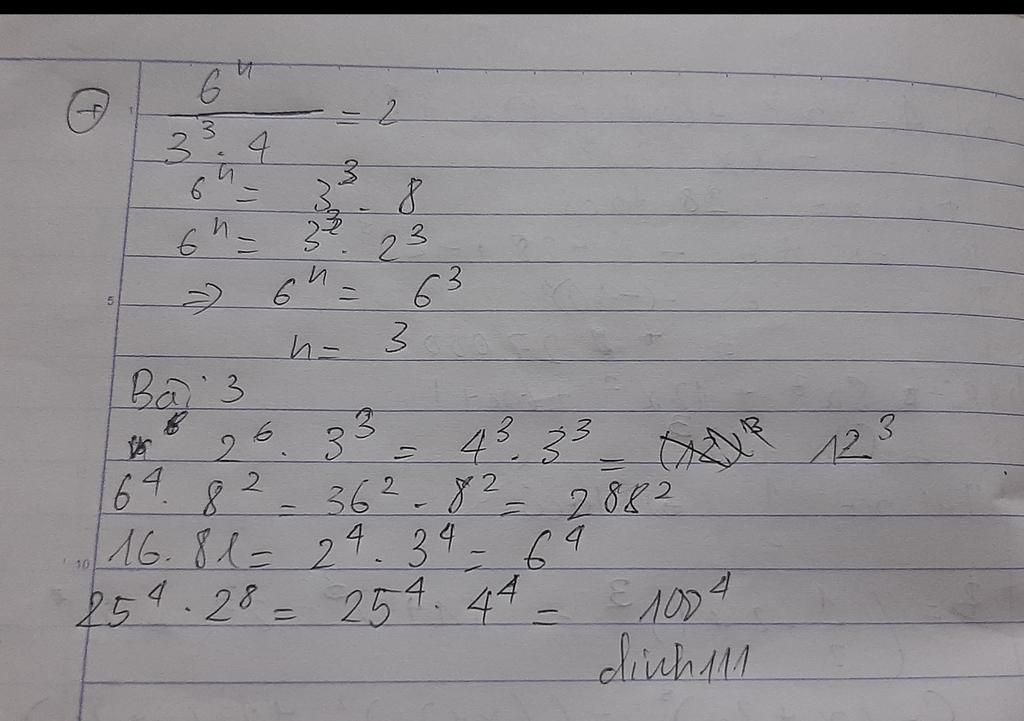 + 6^n / (3^3 . 4) = 2
6^n = 3^3 . 8
6^n = 3^3 . 2^3
=> 6^n = 6^3
n = 3
Bài 3
2^6 . 3^3 = 4^3 . 3^3 = 12^3
6^4 . 8^2 = 36^2 . 8^2 = 288^2
16 . 81 = 2^4 . 3^4 = 6^4
25^4 . 2^8 = 25^4 . 4^4 = 100^4
dinh111
5
10